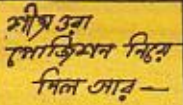 শীঘ্র ওরা
পোজিশন নিয়ে
নিল আর —